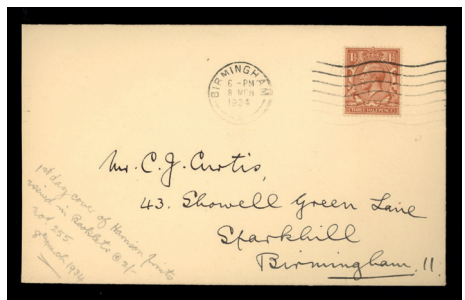 BIRMINGHAM
6 - PM
8 MCH
1924
THREE HALFPENCE
Mr. C. J. Curtis,
43. Showell Green Lane
Sparkhill
Birmingham. 11.
1st day cover of Harrison prints
issued in Booklets @ 3/-
8 March 1924